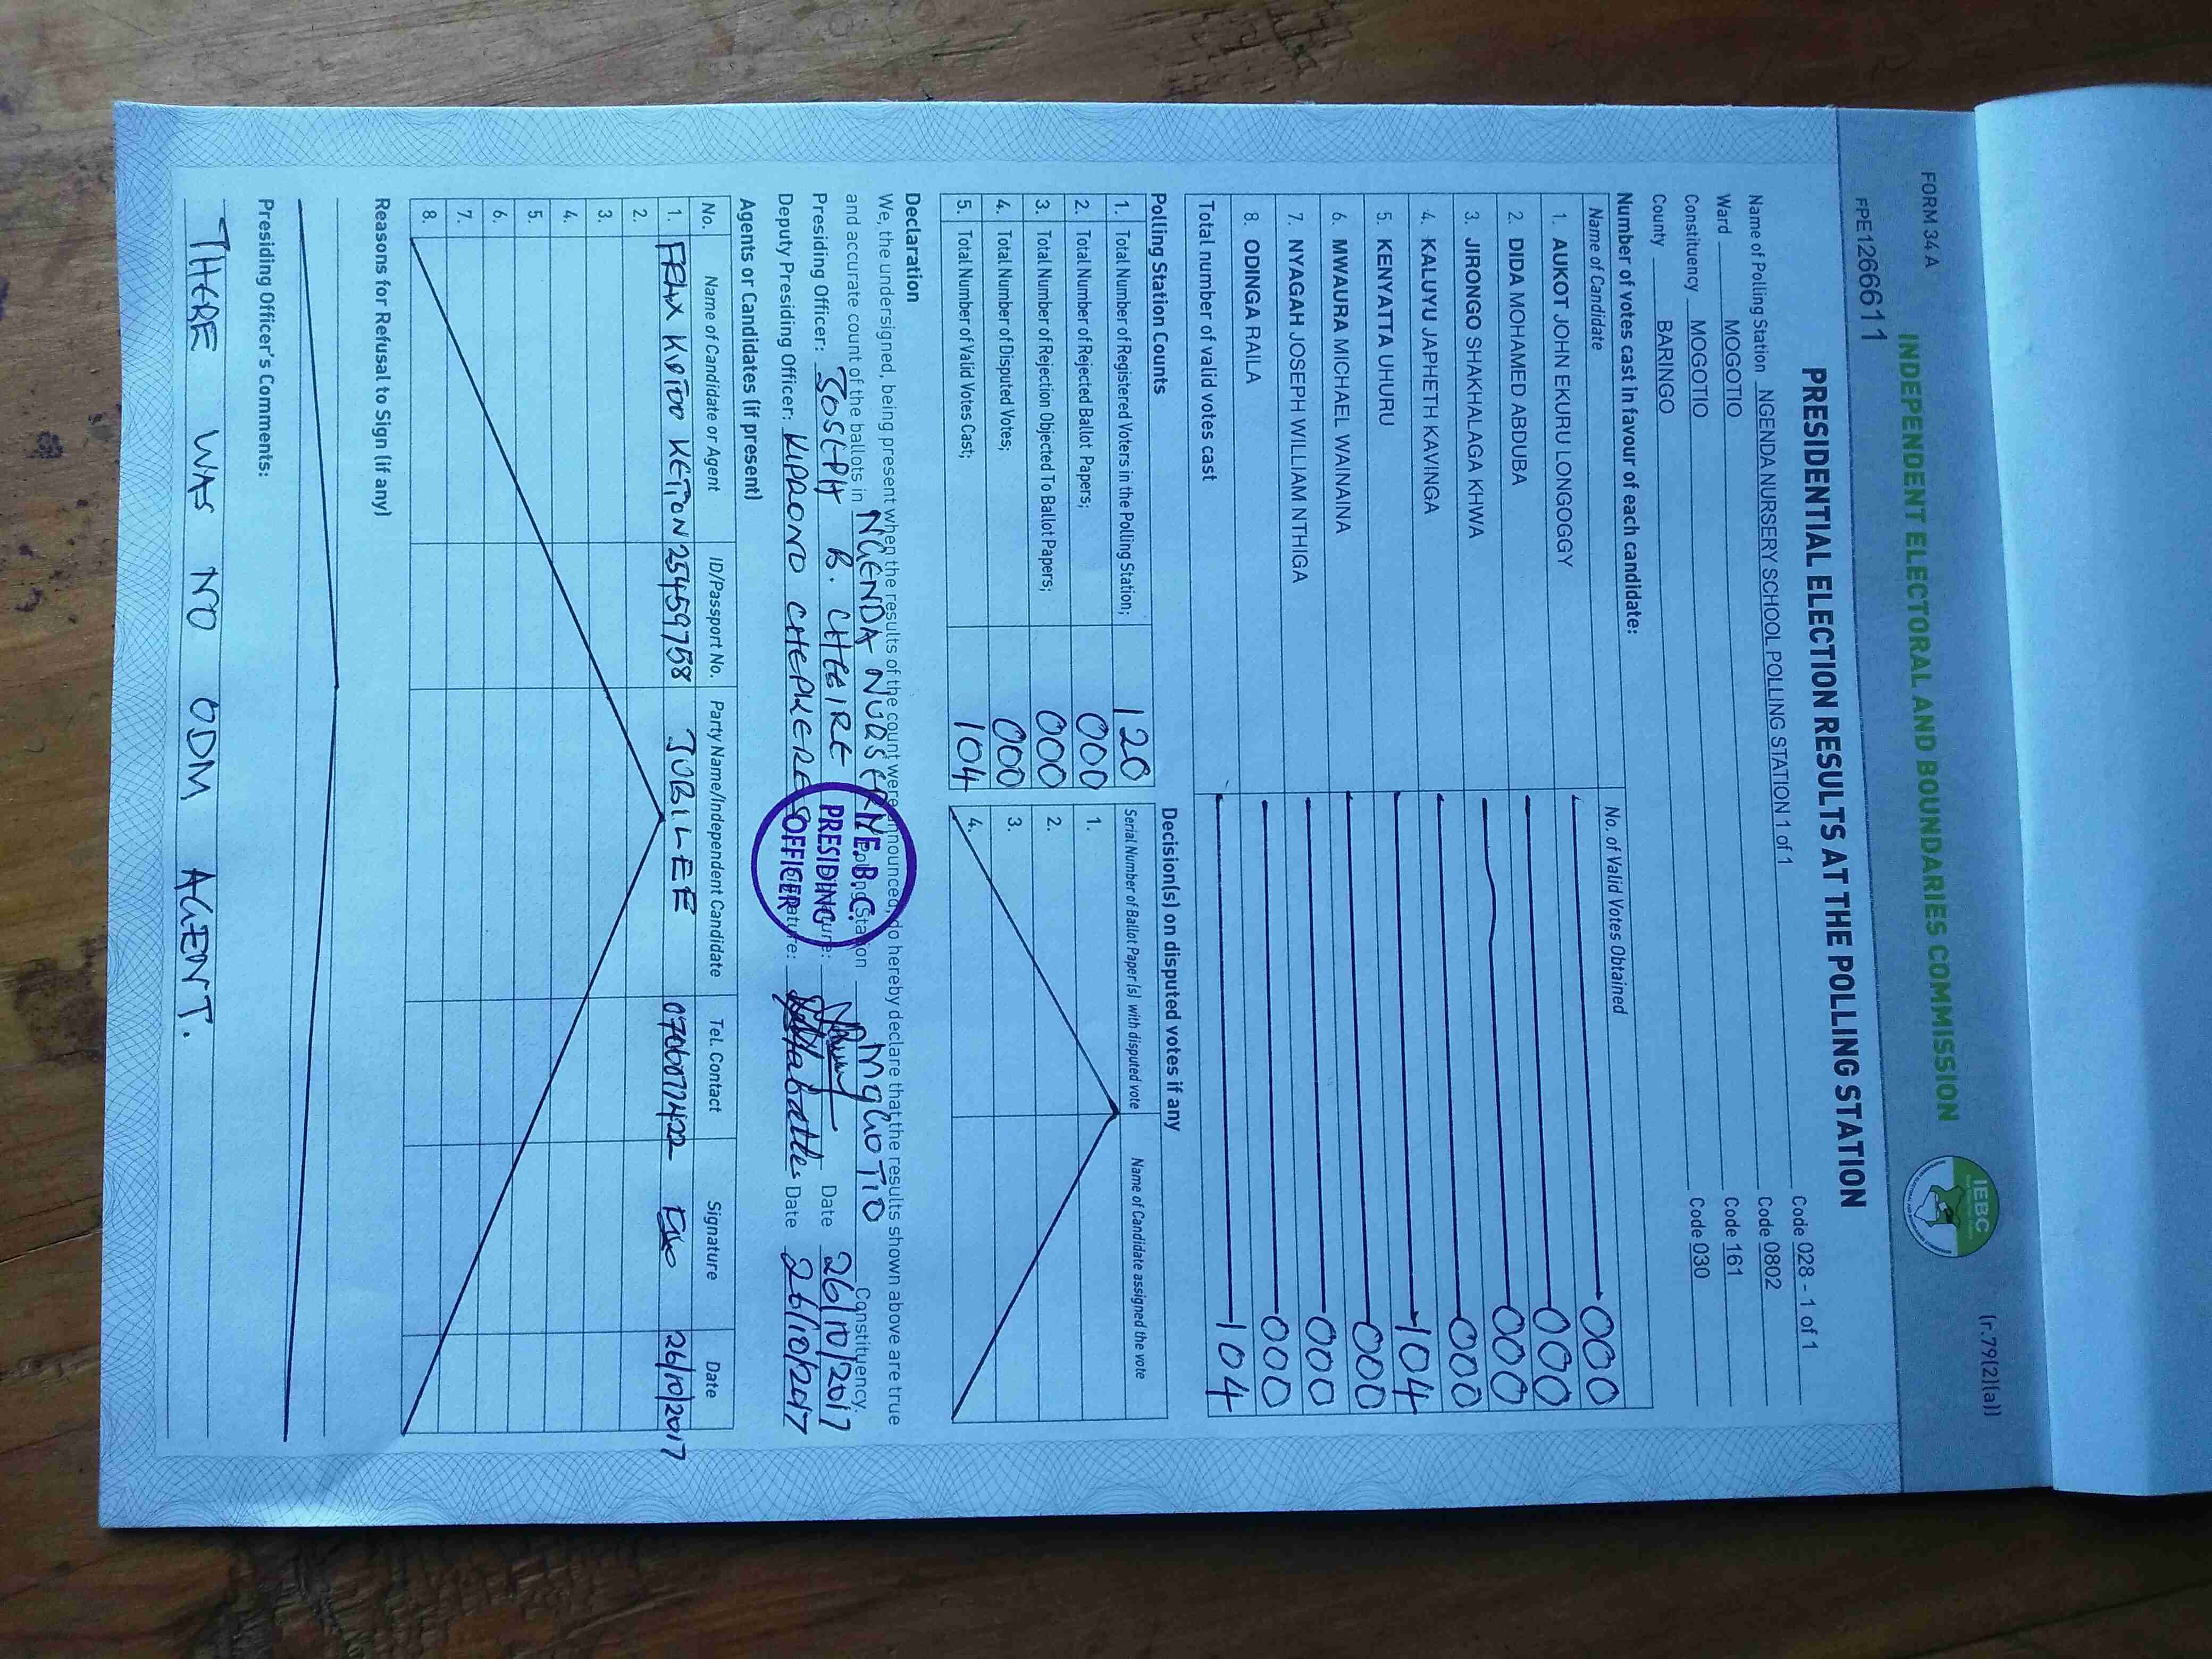 FORM 34 A
(r.79(2)(a))
INDEPENDENT ELECTORAL AND BOUNDARIES COMMISSION
IEBC
FPE1266611
PRESIDENTIAL ELECTION RESULTS AT THE POLLING STATION
Name of Polling Station NGENDA NURSERY SCHOOL POLLING STATION 1 of 1 Code 028 - 1 of 1
Ward MOGOTIO Code 0802
Constituency MOGOTIO Code 161
County BARINGO Code 030
Number of votes cast in favour of each candidate:
Name of Candidate No. of Valid Votes Obtained
1. AUKOT JOHN EKURU LONGOGGY 000
2. DIDA MOHAMED ABDUBA 000
3. JIRONGO SHAKHALAGA KHWA 000
4. KALUYU JAPHETH KAVINGA 000
5. KENYATTA UHURU 104
6. MWAURA MICHAEL WAINAINA 000
7. NYAGAH JOSEPH WILLIAM NTHIGA 000
8. ODINGA RAILA 000
Total number of valid votes cast 104
Polling Station Counts Decision(s) on disputed votes if any
Serial Number of Ballot Paper (s) with disputed vote Name of Candidate assigned the vote
1. Total Number of Registered Voters in the Polling Station; 120 1.
2. Total Number of Rejected Ballot Papers; 000 2.
3. Total Number of Rejection Objected To Ballot Papers; 000 3.
4. Total Number of Disputed Votes; 000 4.
5. Total Number of Valid Votes Cast; 104
Declaration
We, the undersigned, being present when the results of the count were announced, do hereby declare that the results shown above are true
and accurate count of the ballots in NGENDA NURSERY Polling Station MOGOTIO Constituency.
Presiding Officer: JOSEPH B. CHEBIRE Signature: Date 26/10/2017
Deputy Presiding Officer: KIPRONO Signature: Date 26/10/2017
I.E.B.C.
PRESIDING
OFFICER
Agents or Candidates (if present)
No. Name of Candidate or Agent ID/Passport No. Party Name/Independent Candidate Tel. Contact Signature Date
1. KIPTOO 25459758 JUBILEE 0706077422 26/10/2017
2.
3.
4.
5.
6.
7.
8.
Reasons for Refusal to Sign (if any)
Presiding Officer's Comments:
THERE WAS NO ODM AGENT.